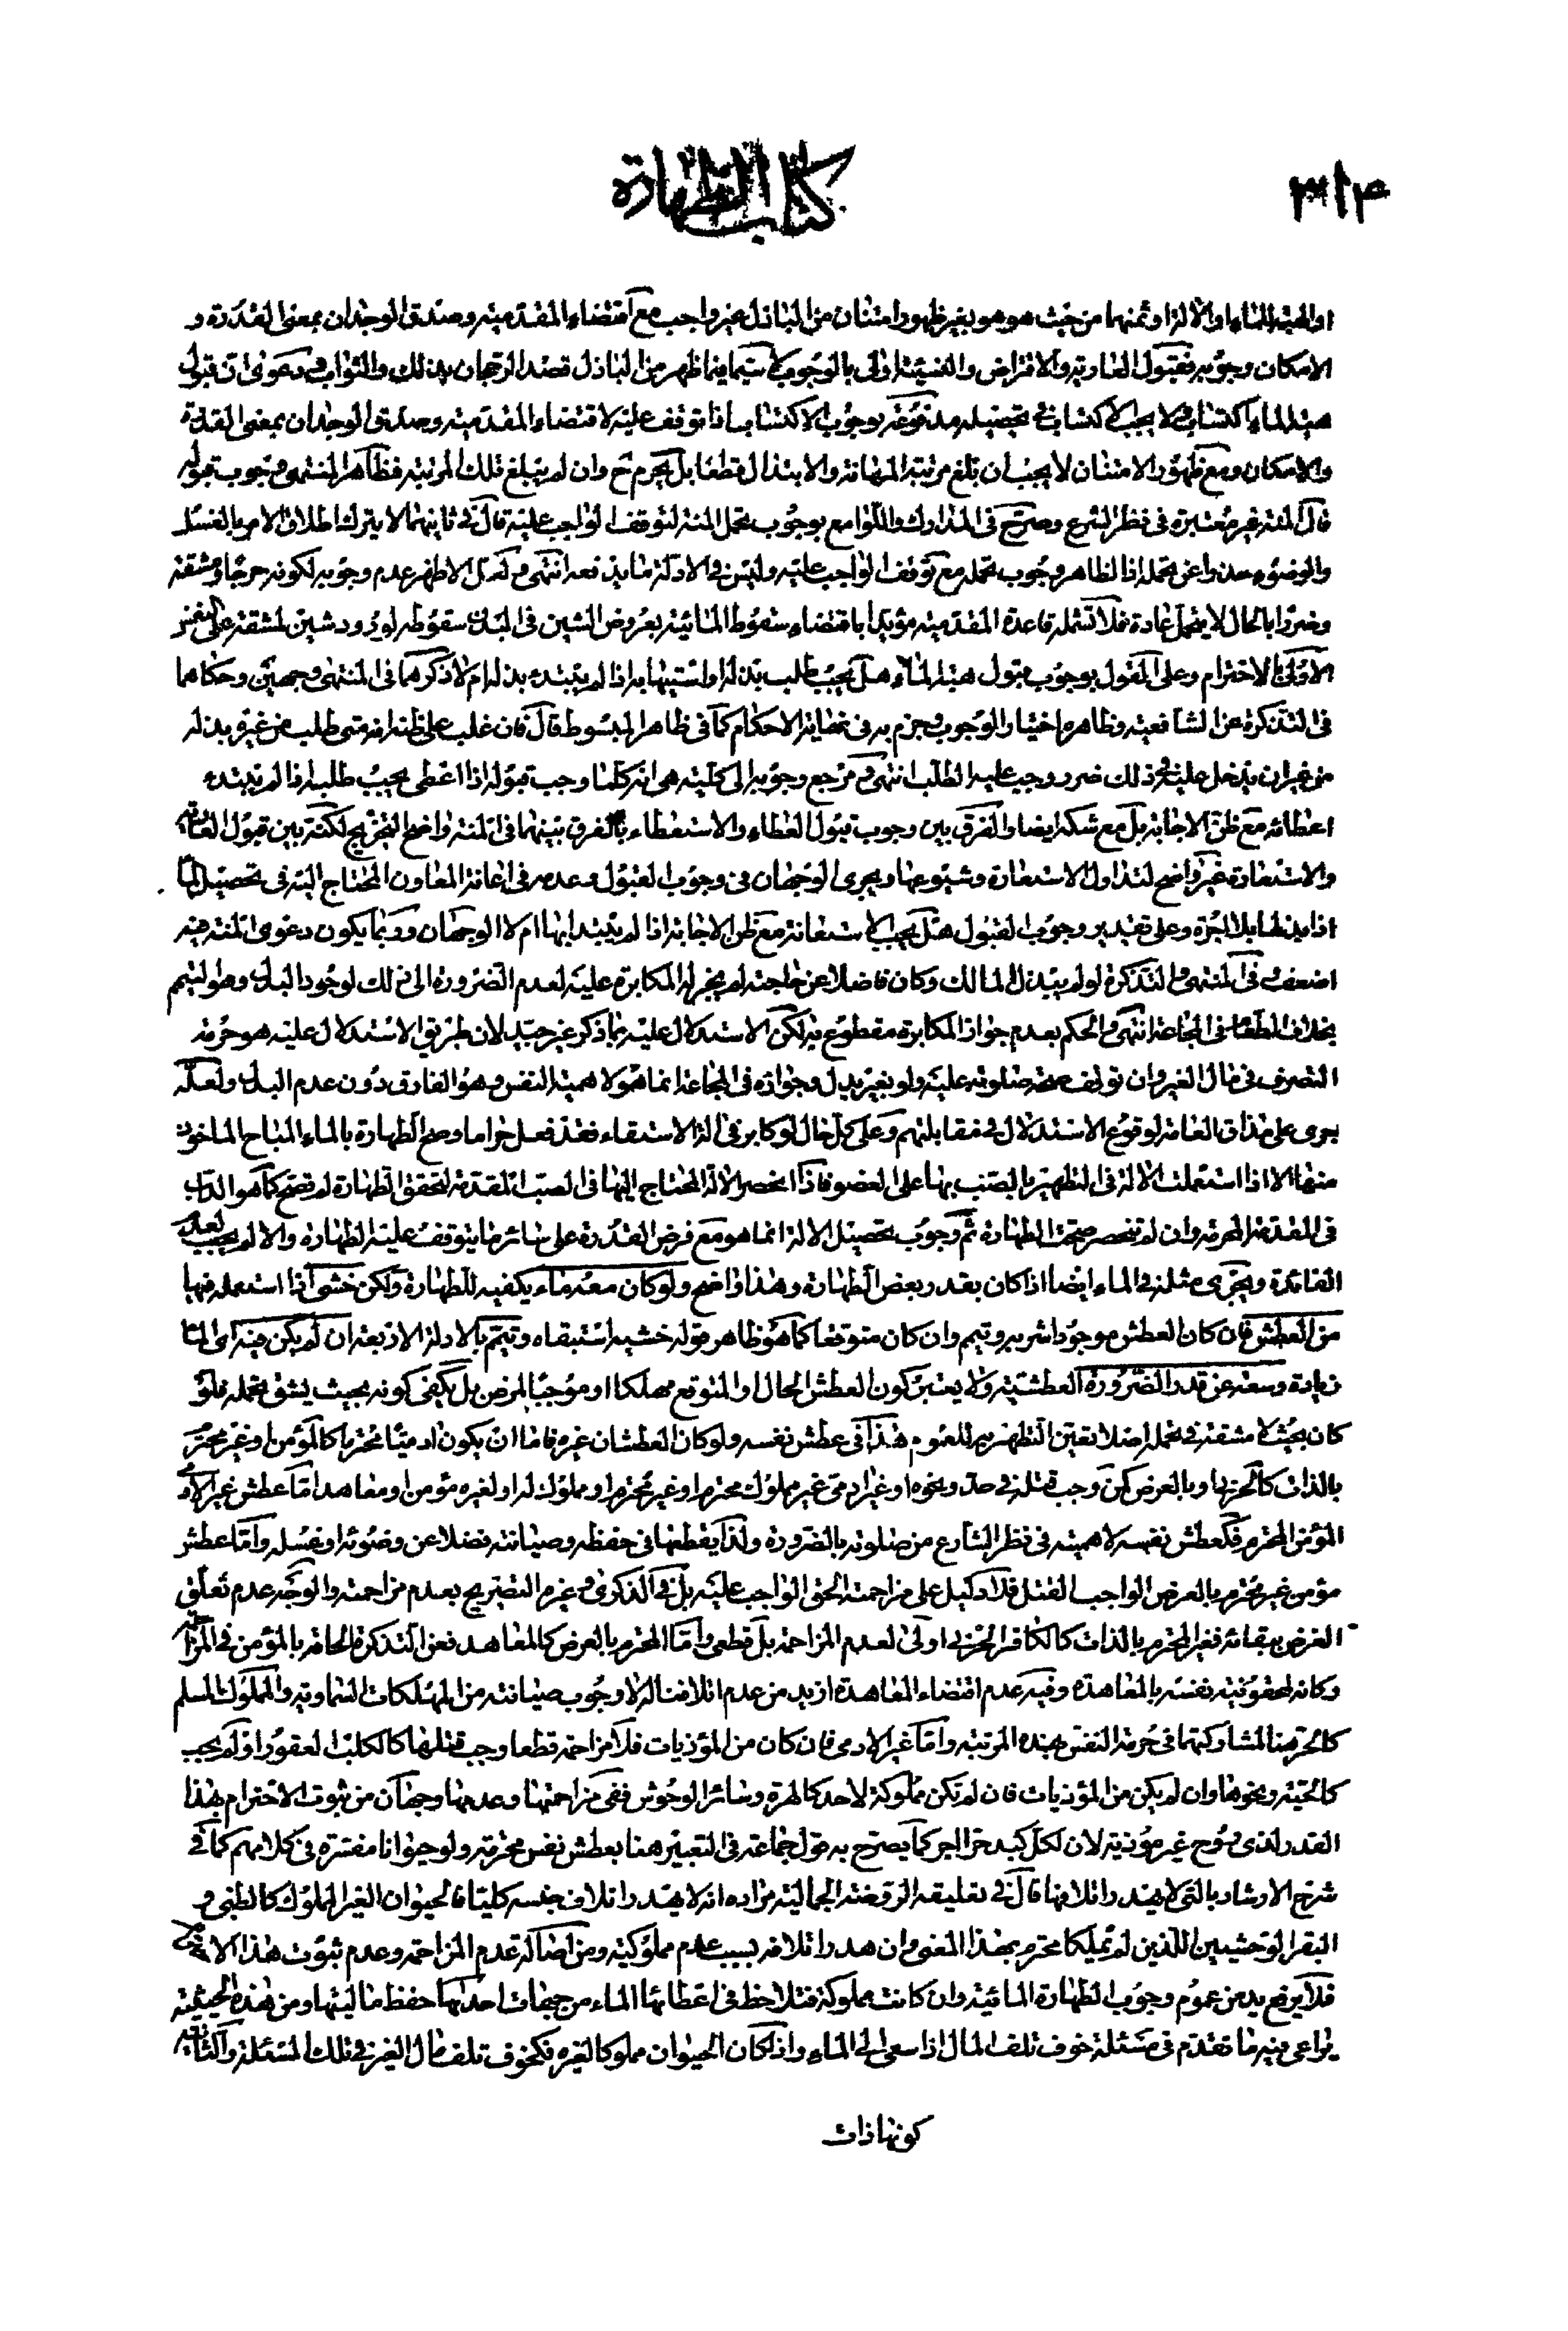 ٣١٤
كتاب الطهارة
او الهبة للماء او الآلة او ثمنهما من حيث هو هو بغير ظهور امتنان من الباذل غير واجب مع اقتضاء المقدمية وصدق الوجدان بمعنى القدرة و
الامكان وجوبه فقبول العارية والاقتراض والنسيئة اولى بالوجوب لا سيما فيما ظهر من الباذل قصد الرجحان بذلك والثواب ودعوى ان قبول
هبة الماء اكتساب ولا يجب الاكتساب في تحصيله مدفوعة بوجوب الاكتساب اذا توقف عليه لاقتضاء المقدمية وصدق الوجدان بمعنى القدرة
والامكان ومع ظهور الامتنان لا يجب ان بلغ مرتبة المهانة والابتذال قطعا بل يحرم ح وان لم يبلغ تلك المرتبة فظاهر المنتهى وجوب قبوله
قال المنة غير معتبرة في نظر الشرع وصرح في المدارك واللوامع بوجوب تحمل المنة لتوقف الواجب عليه قال في ثانيهما لا يترك اطلاق الامر بالغسل
والوضوء حذرا عن تحمله اذ الظاهر وجوب تحمله مع توقف الواجب عليه وليس في الادلة ما يدفعه انتهى ولعل الاظهر عدم وجوبه لكونه حرجا ومشقة
وضررا بالحال لا يتحمل عادة فلا تشمله قاعدة المقدمية مؤيدا باقتضاء سقوط المائية بعروض الشين في البدن سقوطه لورود شين المشقة على النفس
الاولى بالاحترام وعلى القول بوجوب قبول هبة الماء هل يجب طلب بذله واستيهابه اذا لم يبتدء بذله ام لا ذكرهما في المنتهى وجهين وحكاهما
في التذكرة عن الشافعية وظاهره اختيار الوجوب وجزم به في نهاية الاحكام كما في ظاهر المبسوط قال فان غلب على ظنه انه متى طلب من غيره بذله
من غير ان يدخل عليه في ذلك ضرر وجب عليه الطلب انتهى ومرجع وجوبه الى كلية هي انه كلما وجب قبوله اذا اعطى يجب طلبه اذا لم يبتدء
اعطائه مع ظن الاجابة بل مع شكه ايضا والفرق بين وجوب قبول العطاء والاستعطاء بالفرق بينهما في المنة واضح التخريج لكنه بين قبول العارية
والاستعارة غير واضح لتداول الاستعارة وشيوعها ويجرى الوجهان في وجوب القبول وعدمه في اعانة المعاون المحتاج اليه في تحصيل الماء
اذا بذلها بلا اجرة وعلى تقدير وجوب القبول هل يجب الاستعانة مع ظن الاجابة اذا لم يبتدء بها ام لا الوجهان وربما يكون دعوى المنة فيه
اضعف وفي المنتهى والتذكرة لو لم يبذل المالك وكان فاضلا عن حاجته لم يجز له المكابرة عليه لعدم الضرورة الى ذلك لوجود البدل وهو التيمم
بخلاف الطعام في المجاعة انتهى والحكم بعدم جواز المكابرة مقطوع به لكن الاستدلال عليه بما ذكر غير جيد لان طريق الاستدلال عليه هو حرمة
التصرف في مال الغير وان توقف صحة صلوته عليه ولو بغير بدل وجوازه في المجاعة انما هو لاهمية النفس وهو الفارق دون عدم البدل ولعله
جرى على مذاق العامة لوقوع الاستدلال في مقابلتهم وعلى كل حال لو كابر في آلة الاستقاء فقد فعل حراما وصح الطهارة بالماء المباح الماخوذ
منها الا اذا استعملت الآلة في التطهير بالصب بها على العضو فاذا انحصر الآلة المحتاج اليها في الصب المقدمة لتحقق الطهارة لم تصح كما هو الداب
في المقدمة المحرمة وان لم تنحصر صحت الطهارة ثم وجوب تحصيل الآلة انما هو مع فرض القدرة على سائر ما يتوقف عليه الطهارة والا لم يجب لعدم
الفائدة ويجرى مثله في الماء ايضا اذا كان بقدر بعض الطهارة وهذا واضح ولو كان معه ماء يكفيه للطهارة ولكن خشى اذا استعمله فيها
من العطش فان كان العطش موجودا شربه وتيمم وان كان متوقعا كما هو ظاهر قوله خشيه استبقاه وتيمم بالادلة الاربعة ان لم يكن فيه اى الماء
زيادة وسعة عن قدر الضرورة العطشية ولا يعتبر كون العطش الحال او المتوقع مهلكا او موجبا لمرض بل يكفى كونه بحيث يشق تحمله فلو
كان بحيث لا مشقة في تحمله اصلا تعين التطهر به للعموم هذا في عطش نفسه ولو كان العطشان غيره فاما ان يكون ادميا محترما كالمؤمن او غير محترم
بالذات كالحربى او بالعرض كمن وجب قتله في حد ونحوه او غير ادمى غير مملوك محترم او غير محترم او مملوك له او لغيره مؤمن او معاهد اما عطش غير الادمى
المؤمن المحترم فكعطش نفسه لاهميته في نظر الشارع من صلوته بالضرورة ولذا يقطعها في حفظه وصيانته فضلا عن وضوئه او غسله واما عطش
مؤمن غير محترم بالعرض الواجب القتل فلا دليل على مزاحمته الحق الواجب عليه بل في الذكرى وغيره التصريح بعدم مزاحمته والوجه عدم تعلق
الغرض ببقائه فغير المحترم بالذات كالكافر الحربى اولى لعدم المزاحمة بل قطعى واما المحترم بالعرض كالمعاهد فعن التذكرة الحاقه بالمؤمن في المزاحمة
وكانه لحقونية نفسه بالمعاهدة وفيه عدم اقتضاء المعاهدة ازيد من عدم اتلافنا له لا وجوب صيانته من المهلكات السماوية والمملوك المسلم
كالحر منا لمشاركتهما في حرمة النفس بهذه المرتبة واما غير الادمى فان كان من المؤذيات فلا مزاحمة قطعا وجب قتلها كالكلب العقور او لم يجب
كالحية ونحوها وان لم يكن من المؤذيات فان لم تكن مملوكة لاحد كالهرة وسائر الوحوش ففى مزاحمتها وعدمها وجهان من ثبوت الاحترام بهذا
القدر لذى روح غير مؤذية لان لكل كبد حرا اجر كما يصرح به قول جماعة في التعبير هنا بعطش نفس محترمة ولو حيوانا مفسرة في كلامهم كما في
شرح الارشاد بالتى لا يهدر اتلافها قال في تعليقه الروضة الجمالية مراده انه لا يهدر اتلاف جنسه كليا فالحيوان الغير المملوك كالظبى و
البقر الوحشيين اللذين لم يملكا محترم بهذا المعنى وان هدر اتلافه بسبب عدم مملوكيته ومن اصالة عدم المزاحمة وعدم ثبوت هذا الاحترام
فلا يرفع يد عن عموم وجوب الطهارة المائية وان كانت مملوكة فتلاحظ في اعطائها الماء من جهات احداها حفظ ماليتها ومن هذه الحيثية
يراعى فيه ما تقدم في مسئلة خوف تلف المال اذا سعى الى الماء واذا كان الحيوان مملوكا لغيره فكخوف تلف مال الغير في تلك المسئلة والثانية
كونها ذات